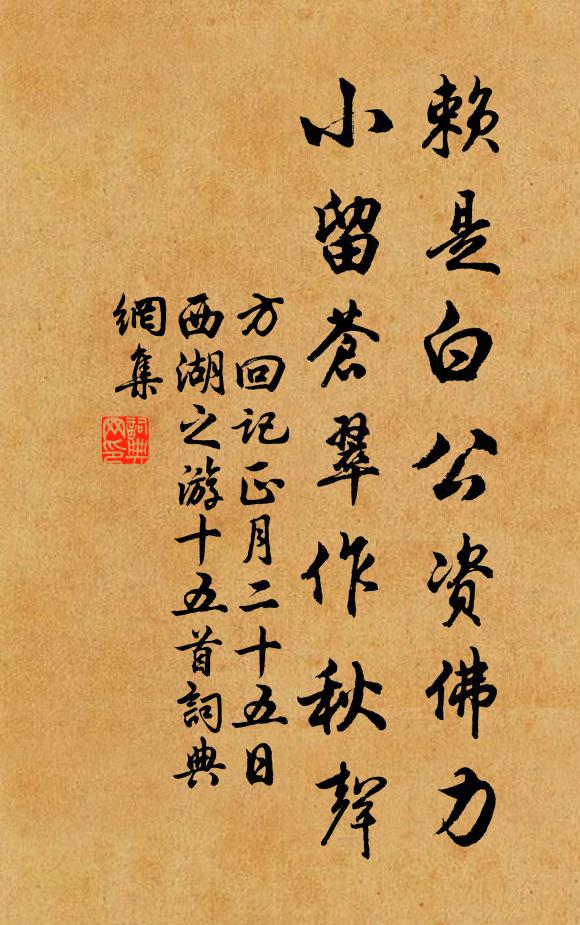 賴是白公资佛力
小留蒼翠作秋聲
方回记正月二十五日
西湖之游十五首詞典
網集
詞典
网印